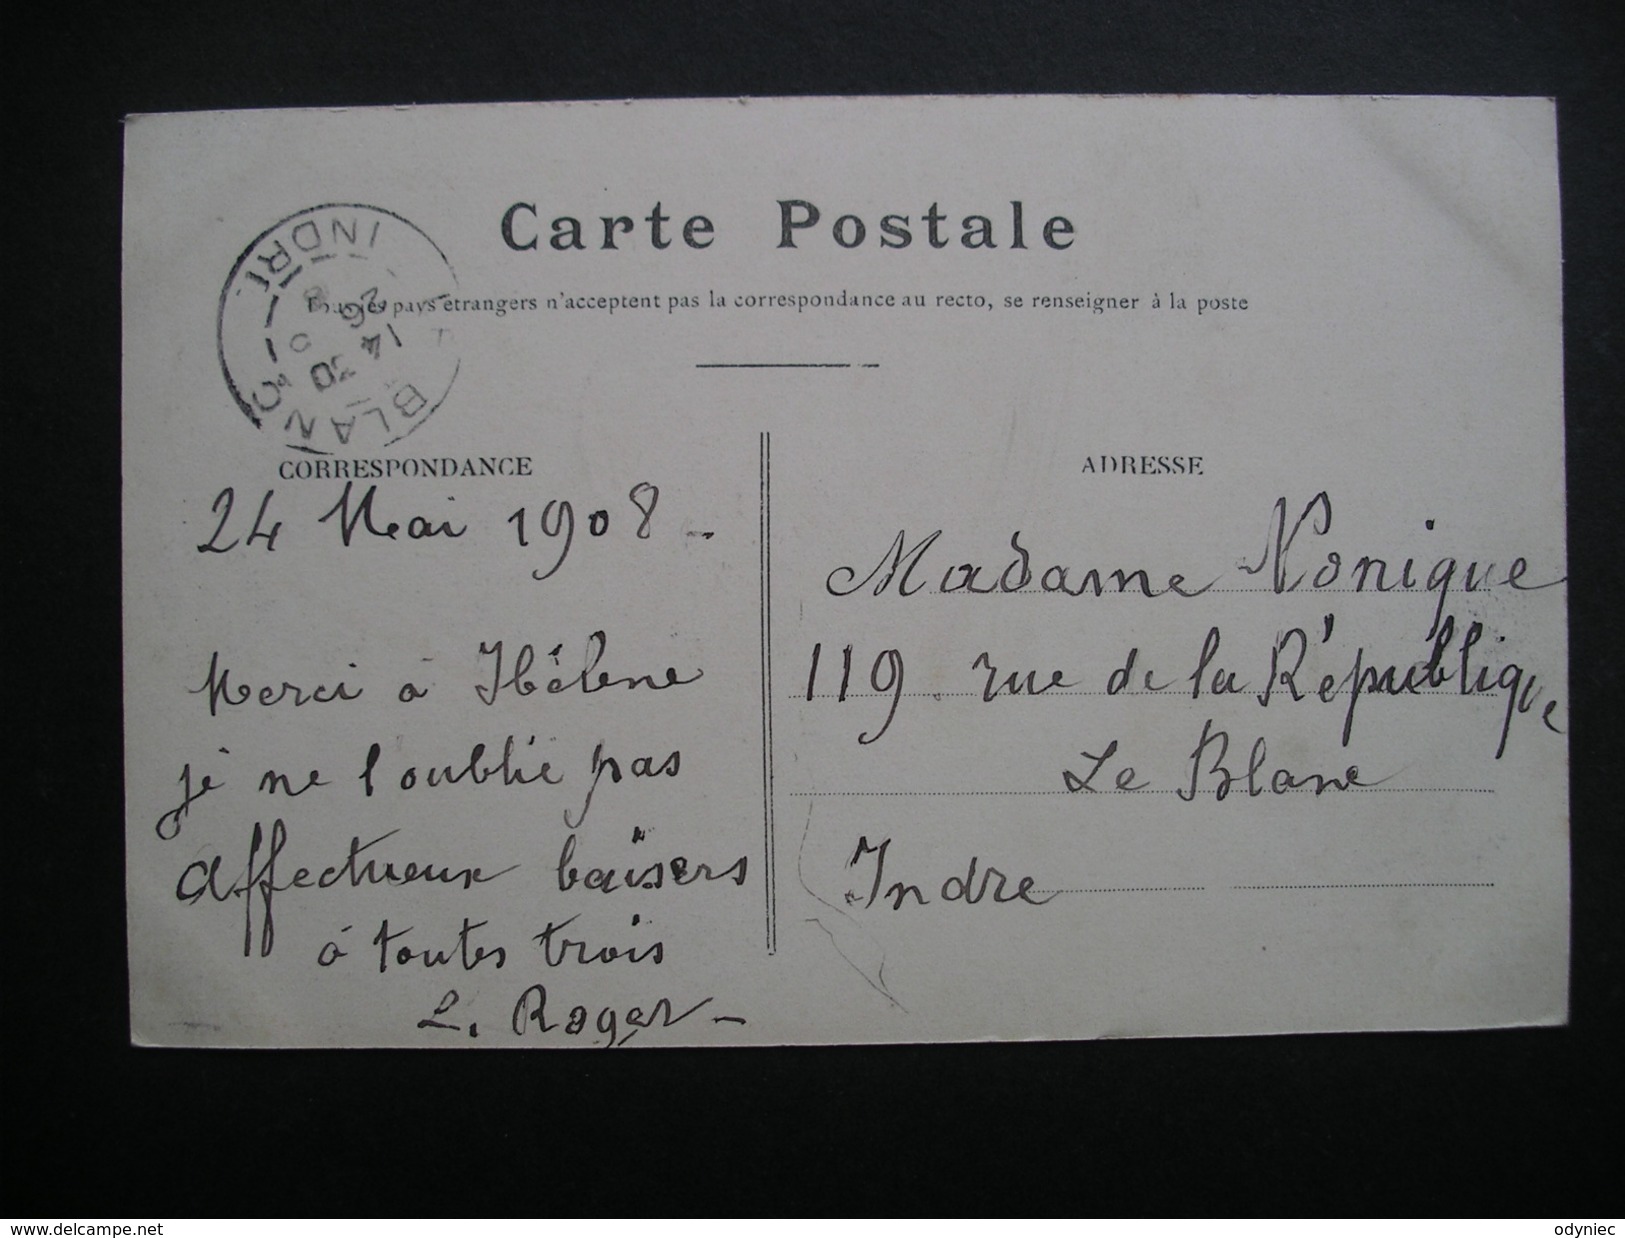 Carte Postale
Tous les pays étrangers n'acceptent pas la correspondance au recto, se renseigner à la poste
INDRE
14 30
BLANC
CORRESPONDANCE
24 Mai 1908 -
Merci à Hélène
je ne l'oublie pas
affectueux baisers
à toutes trois
L. Roger -
ADRESSE
Madame Nonique
119 rue de la République
Le Blanc
Indre
www.delcampe.net
odyniec